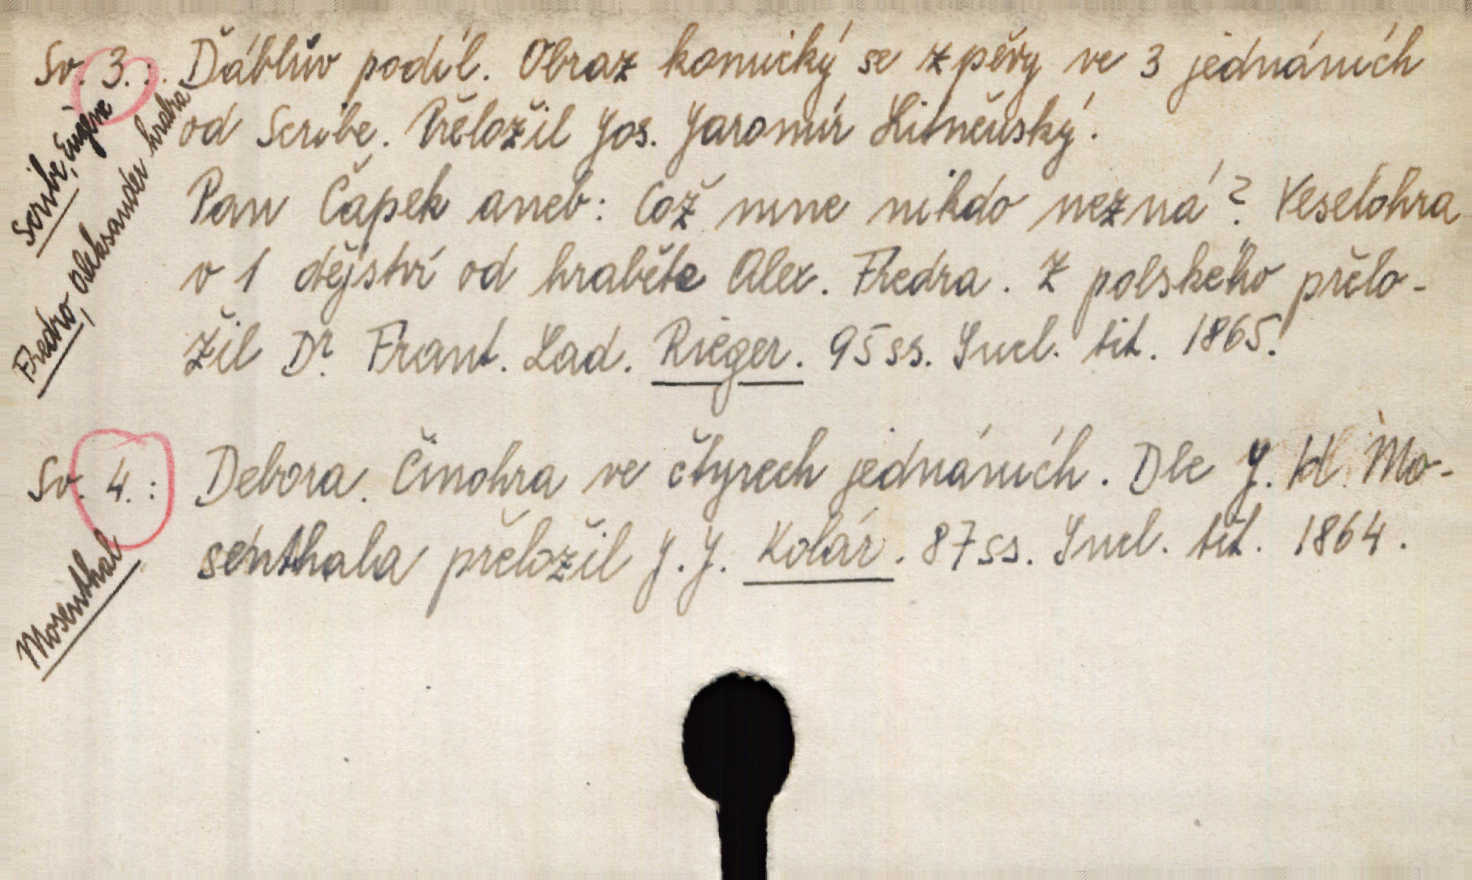 Sv. 3.: Ďáblův podíl. Obraz komický se zpěvy ve 3 jednáních
od Scribe. Přeložil Jos. Jaromír Litněnský.
Pan Čapek aneb: Což mne nikdo nezná? Veselohra
v 1 dějství od hraběte Alex. Fredra. Z polského přelo-
žil Dr. Frant. Lad. Rieger. 95 ss. Incl. tit. 1865.
Scribe, Eugène
Fredro, Aleksander hrabia
Sv. 4.: Debora. Činohra ve čtyrech jednáních. Dle J. H. Mo-
senthala přeložil J. J. Kolár. 87 ss. Incl. tit. 1864.
Mosenthal